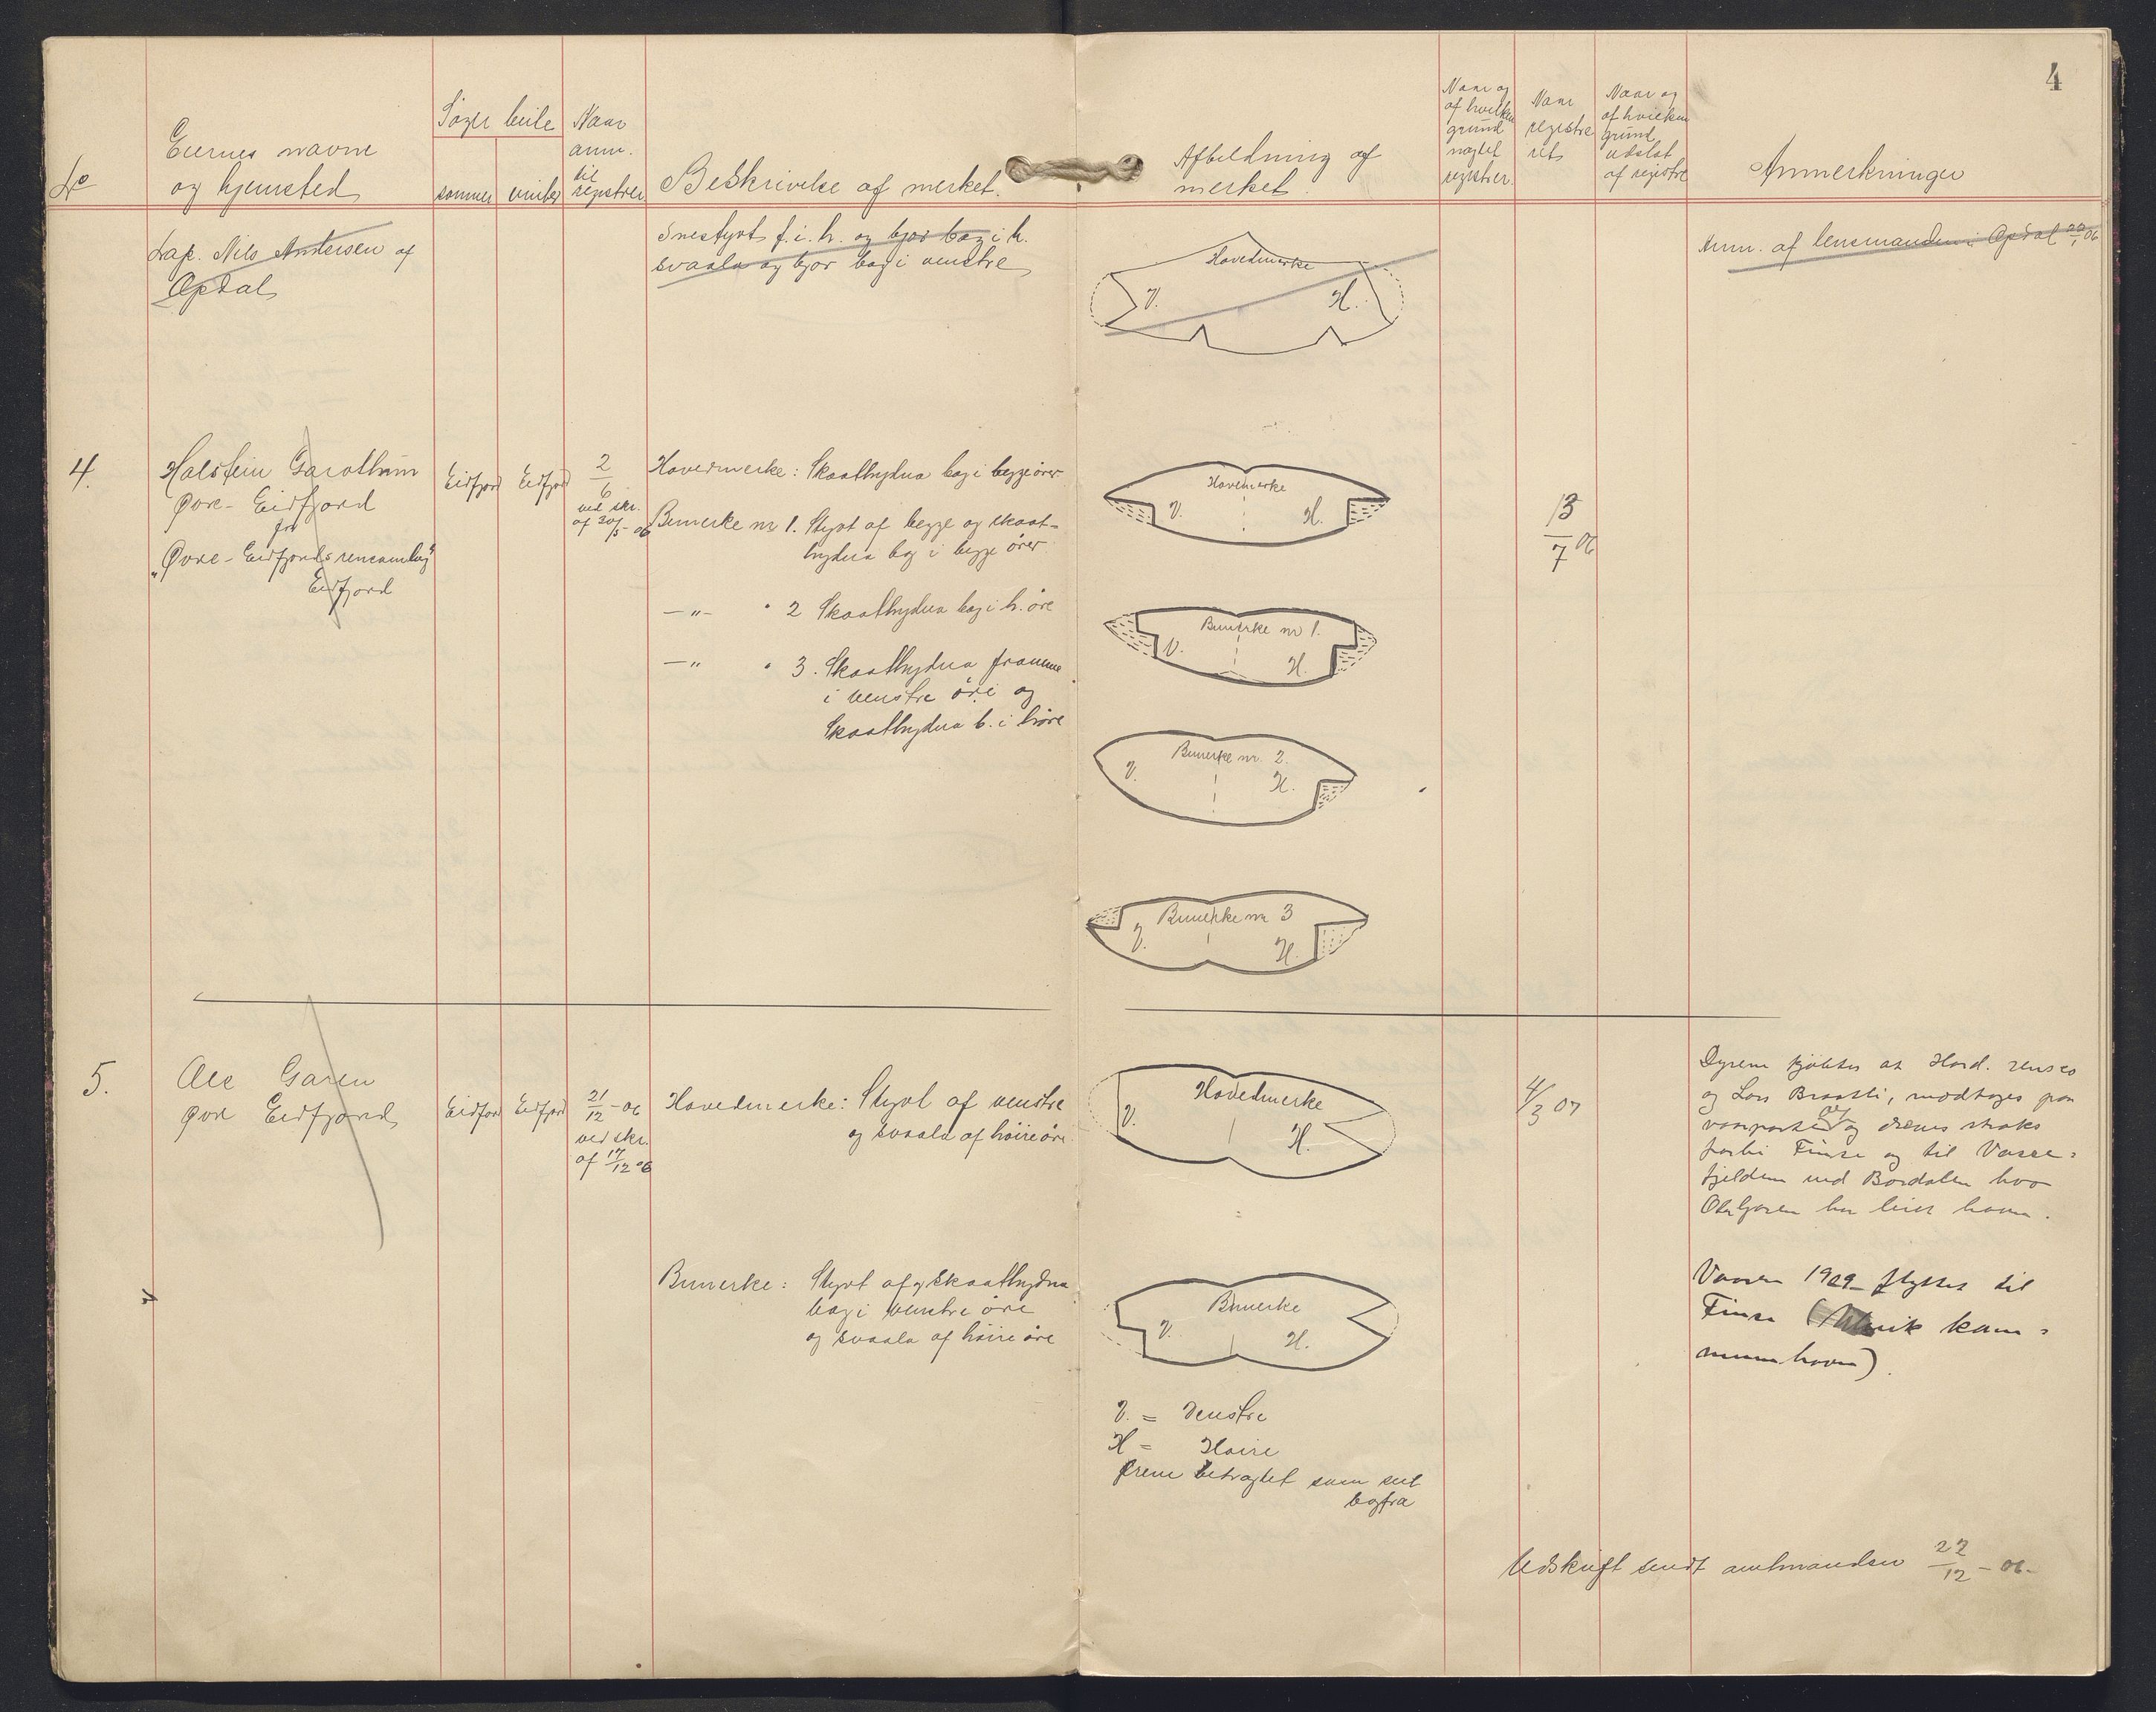 4
No
Eiernes navne
og hjemsted
Søger beite
sommer
vinter
Naar
anm.
til
registrer.
Beskrivelse af merket.
Afbildning af
merket.
Naar og
af hvilken
grund
nægtet
registrer.
Naar
registre
rets
Naar og
af hvilken
grund
udslet
af registre
Anmerkninger
Lap. Nils Andersen af
Opdal
Snestyvt f. i. h. og bjor bag i h.
svaala og bjor bag i venstre
Hovedmerke
V. H.
Anm. af lensmanden i Opdal 20/1 06
4.
Halstein Garathun
Øvre-Eidfjord
for
"Øvre-Eidfjords rensamlag"
Eidfjord
Eidfjord
Eidfjord
2/6
ved skr.
af 30/5-06
Hovedmerke: Skaatbydna bag i begge ører
Bimerke nr 1. Styvt af begge og skaat-
bydna bag i begge ører
—"— " 2 Skaatbydna bag i h. øre
—" " 3. Skaatbydna framme
i venstre øre og
Skaatbydna b. i høire
Hovedmerke
V. H.
Bimerke nr 1.
V. H.
Bimerke nr. 2.
V. H.
Bimerke nr 3
V. H.
13/7 06
5.
Ole Garen
Øvre Eidfjord
Eidfjord
Eidfjord
21/12-06
ved skr.
af 17/12 06
Hovedmerke: Styvt af venstre
og svaala af høire øre
Bimerke: Styvt af og Skaatbydna
bag i venstre øre
og svaala af høire øre
Hovedmerke
V. H.
Bimerke
V. H.
V. = Venstre
H = Høire
Ørene betragtet som seet
bagfra
4/3 07
Dyrene kjøbtes at Hard. rensco
og Lars Braatli, modtoges paa
og drives straks
forbi Finse og til Vosse-
fjeldene ved Bordalen hvor
Ole Garen har leiet havn.
Vaaren 1909 flyttet til
Finse (Ulvik kom-
munehavn).
Udskrift sendt amtmanden 22/12-06-